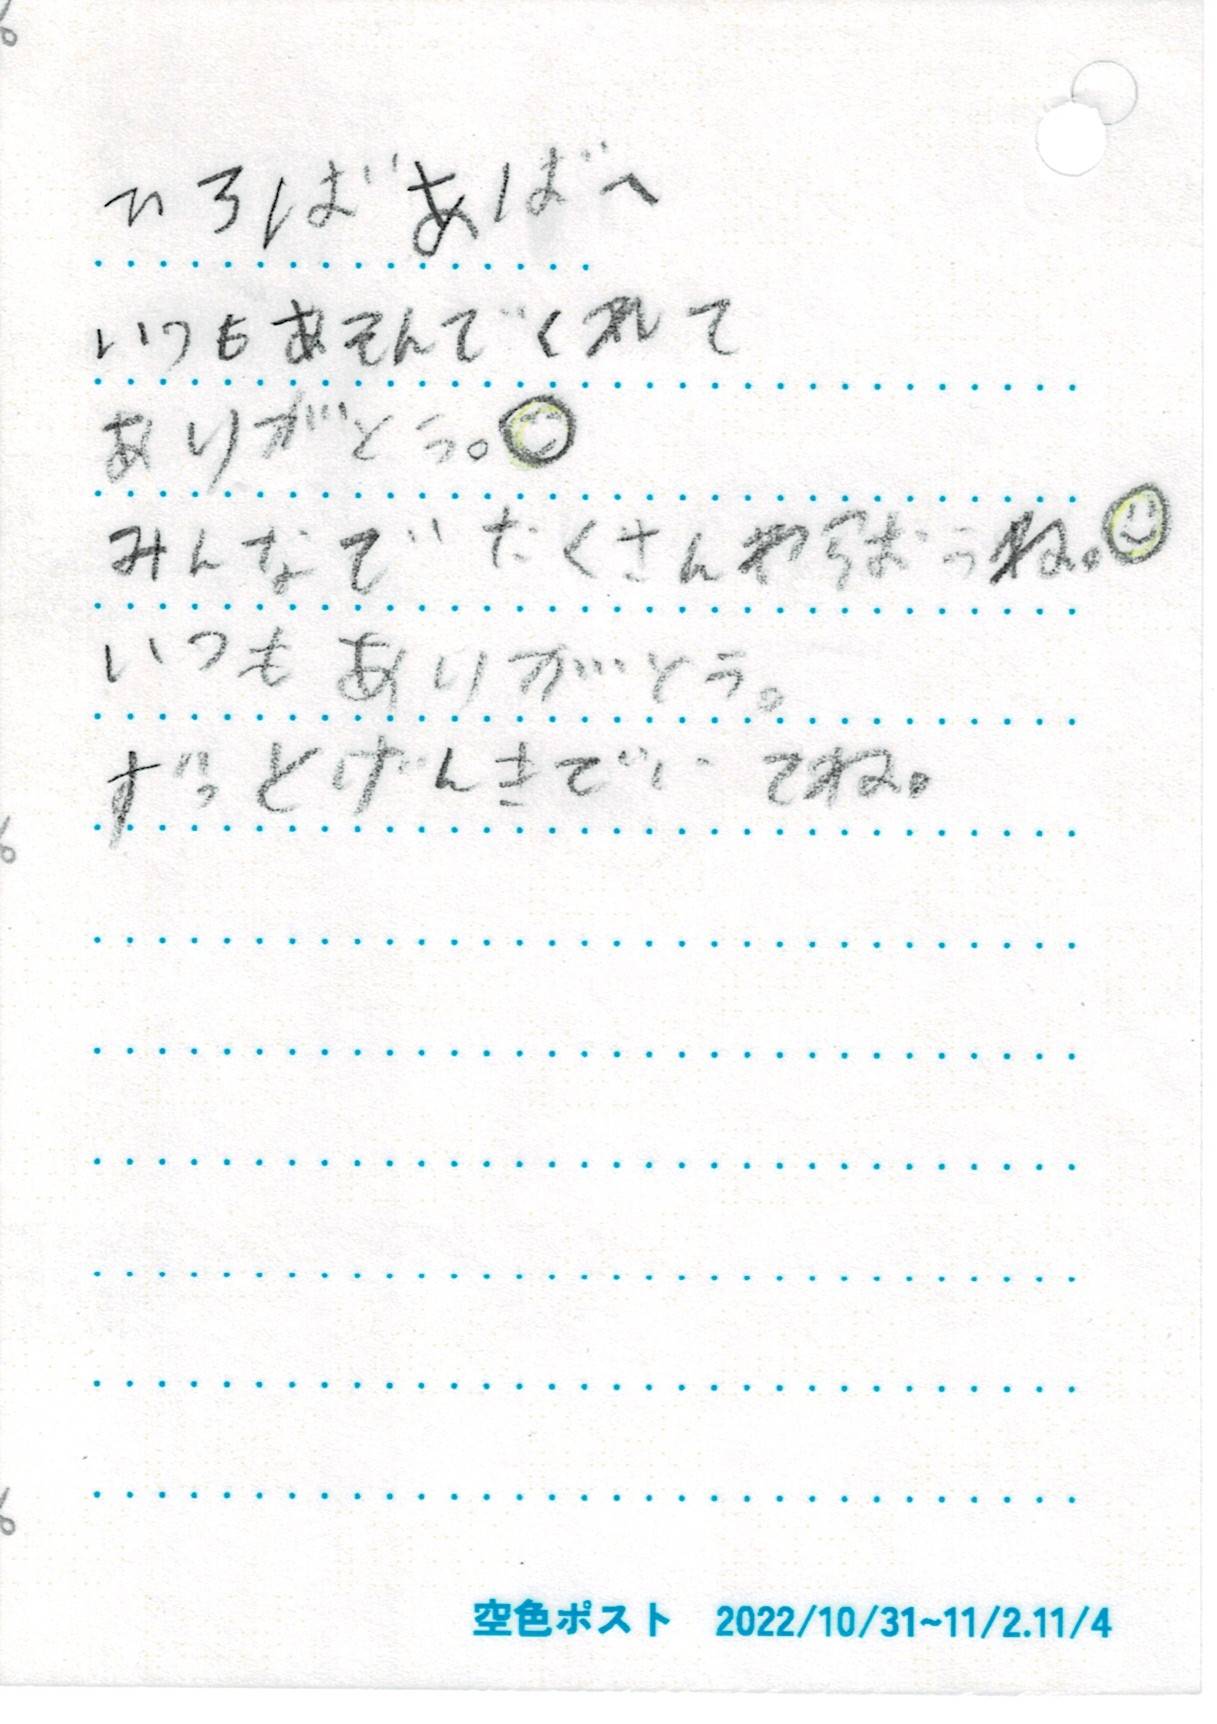 ひろばあばへ
いつもあそんでくれて
ありがとう。
みんなでたくさん
いつもありがとう。
ずっとげんきでいてね。
空色ポスト 2022/10/31~11/2.11/4